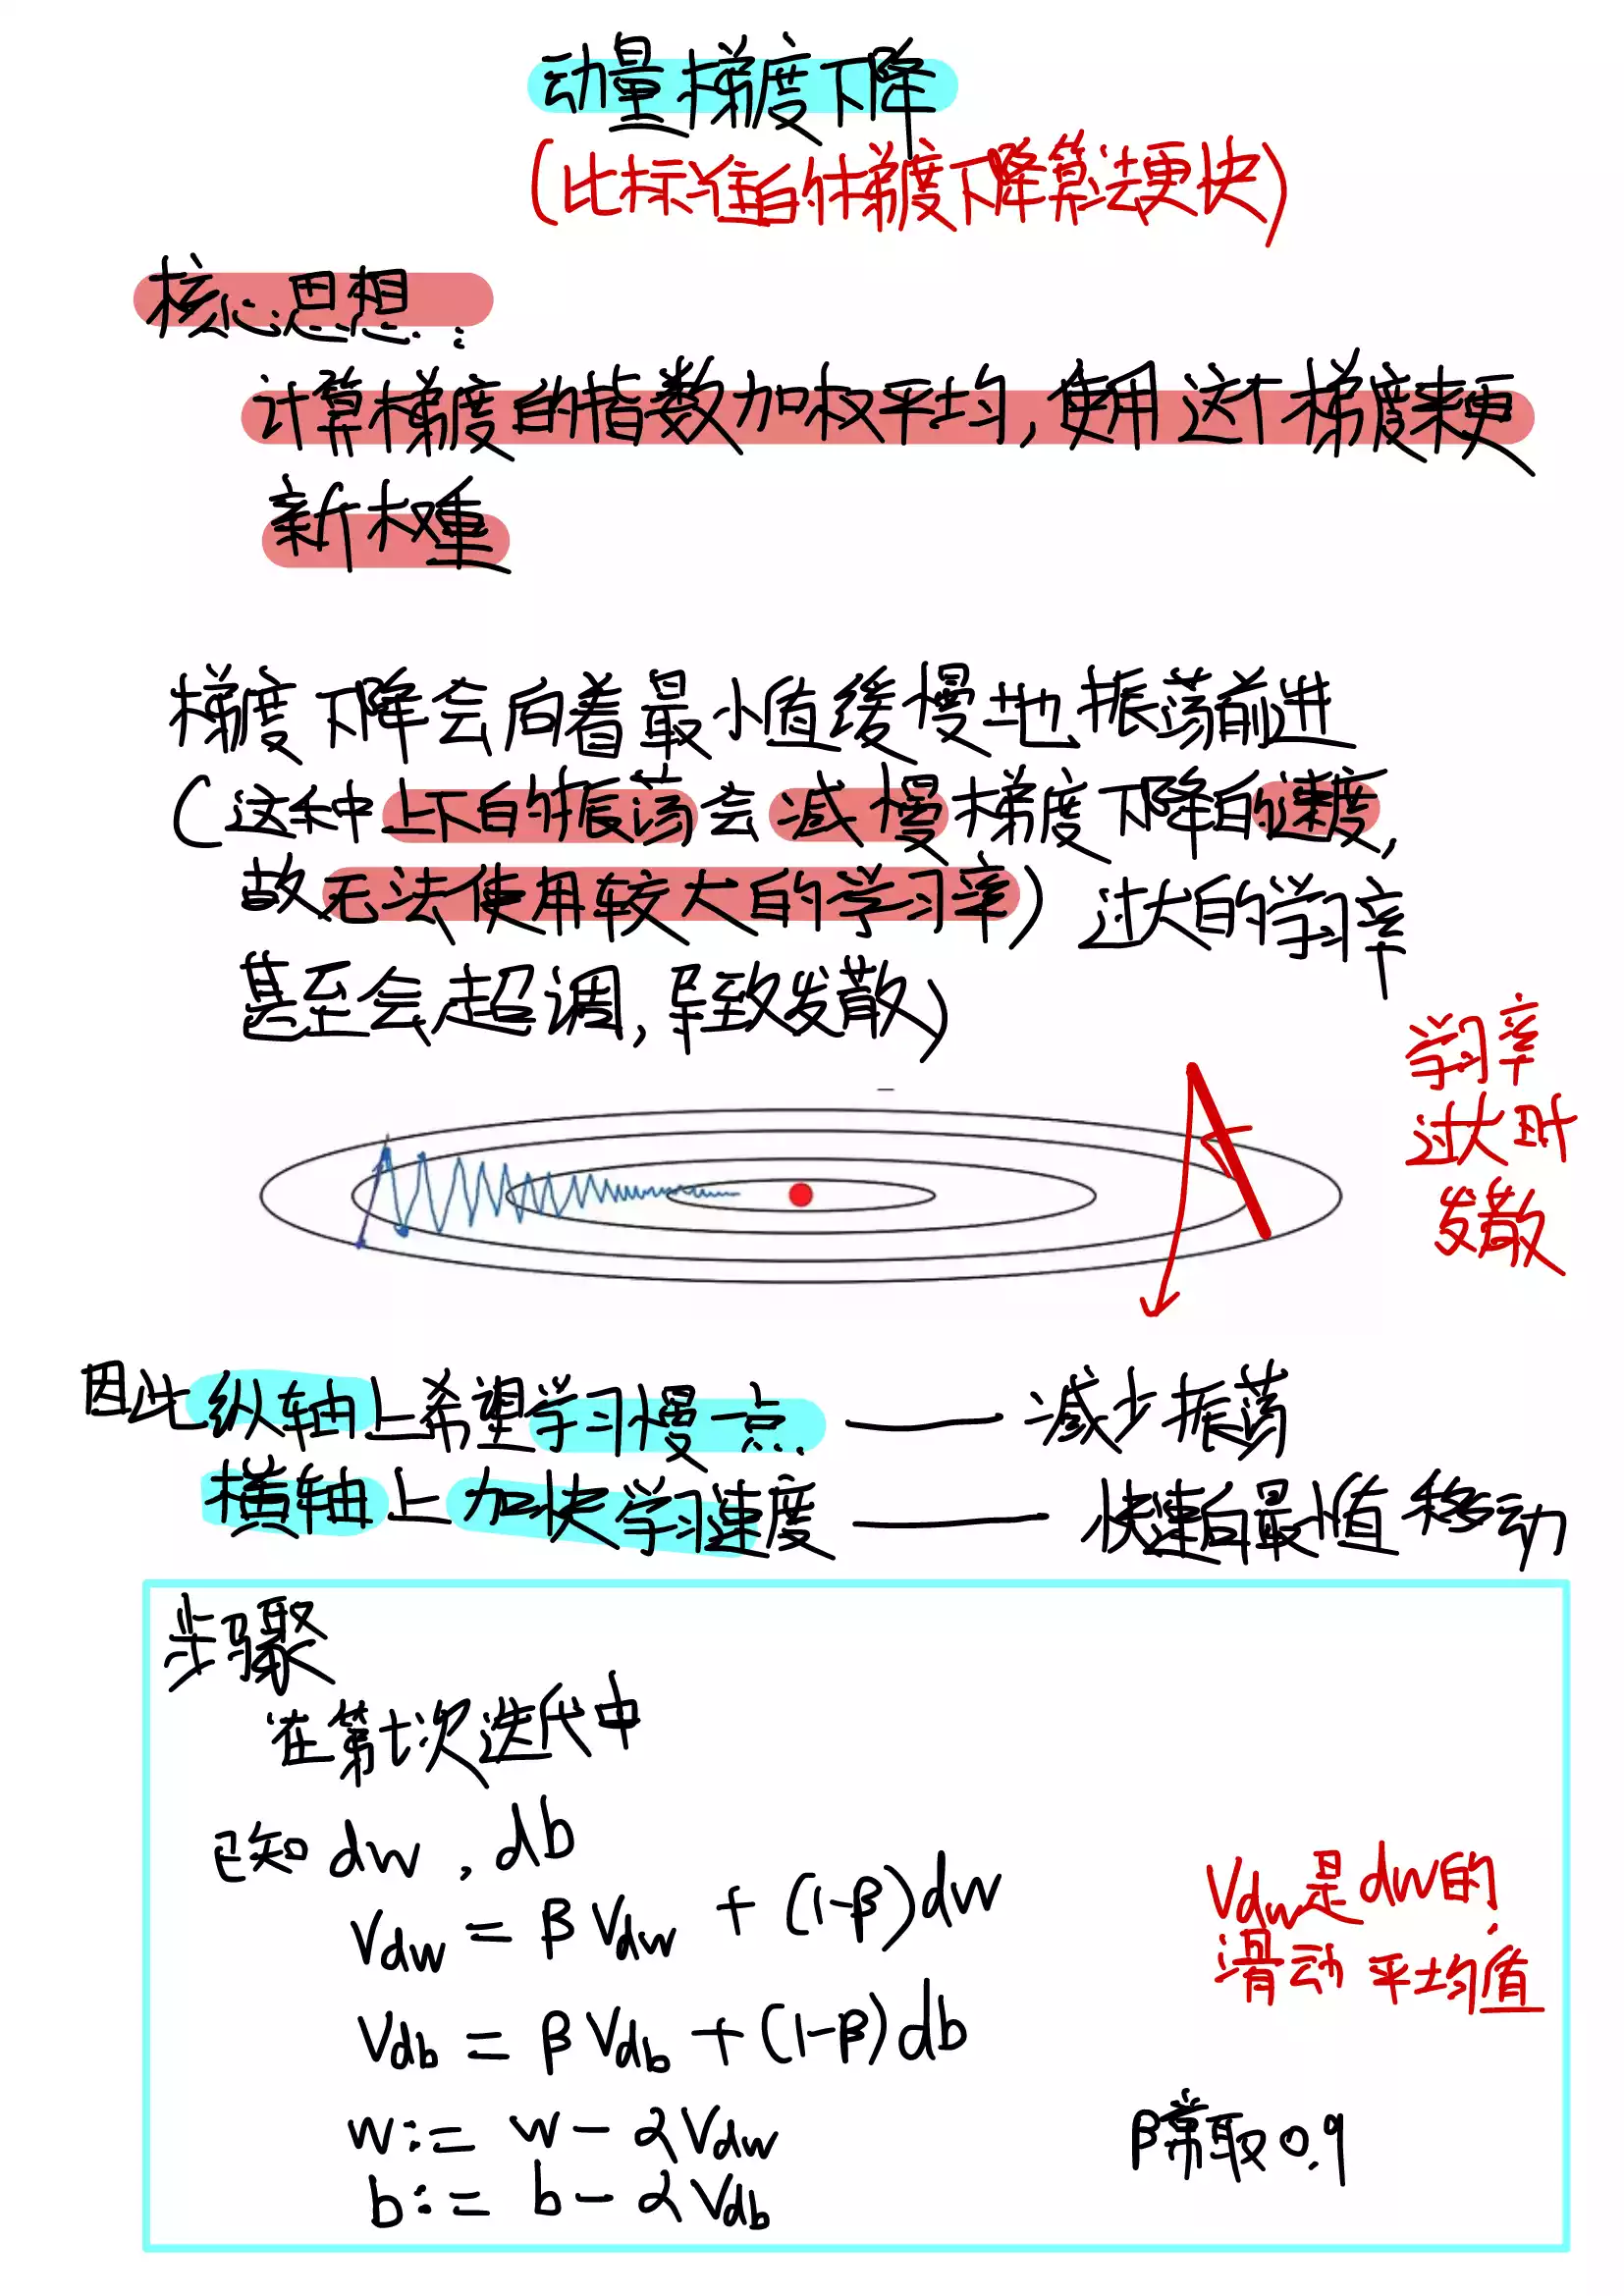 动量梯度下降
(比标准的梯度下降算法更快)
核心思想:
计算梯度的指数加权平均,使用这个梯度来更
新权重
梯度下降会向着最小值缓慢地振荡前进
(这种上下的振荡会减慢梯度下降的速度,
故无法使用较大的学习率)过大的学习率
甚至会超调,导致发散)
学习率
过大时
发散
因此纵轴上希望学习慢一点 —— 减少振荡
横轴上加快学习速度 —— 快速向最小值移动
步骤
在第t次迭代中
已知 dw, db
Vdw = βVdw + (1-β)dw
Vdb = βVdb + (1-β)db
w := w - αVdw
b := b - αVdb
Vdw是dw的
滑动平均值
β常取0.9